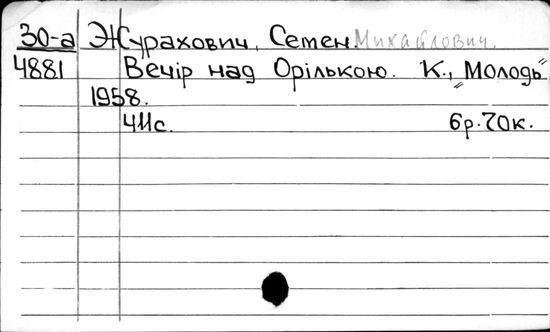 30-а Журахович, Семен. Михайлович.
4881 Вечір над Орількою. К., „Молодь"
1958.
411с. 6р.70к.